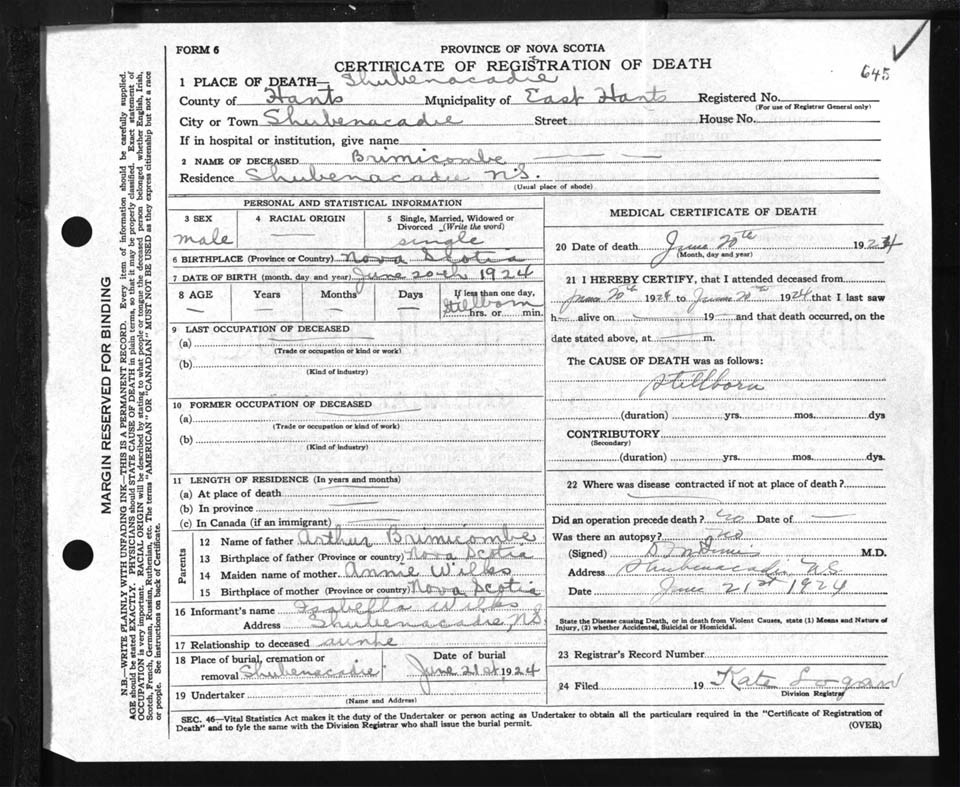 FORM 6
PROVINCE OF NOVA SCOTIA
CERTIFICATE OF REGISTRATION OF DEATH
645
1 PLACE OF DEATH— Shubenacadie
County of Hants Municipality of East Hants Registered No.
(For use of Registrar General only)
City or Town Shubenacadie Street House No.
If in hospital or institution, give name
2 NAME OF DECEASED Brimicombe — — —
Residence Shubenacadie N.S.
(Usual place of abode)
PERSONAL AND STATISTICAL INFORMATION
3 SEX 4 RACIAL ORIGIN 5 Single, Married, Widowed or
Divorced (Write the word)
male — single
6 BIRTHPLACE (Province or Country) Nova Scotia
7 DATE OF BIRTH (month, day and year) June 20th 1924
8 AGE Years Months Days If less than one day,
— — — — Stillborn
hrs. or min.
9 LAST OCCUPATION OF DECEASED
(a)
(Trade or occupation or kind or work)
(b)
(Kind of industry)
10 FORMER OCCUPATION OF DECEASED
(a)
(Trade or occupation or kind of work)
(b)
(Kind of industry)
11 LENGTH OF RESIDENCE (In years and months)
(a) At place of death
(b) In province
(c) In Canada (if an immigrant)
Parents
12 Name of father Arthur Brimicombe
13 Birthplace of father (Province or country) Nova Scotia
14 Maiden name of mother Annie Wilks
15 Birthplace of mother (Province or country) Nova Scotia
16 Informant's name Isabella Wilks
Address Shubenacadie N.S.
17 Relationship to deceased
18 Place of burial, cremation or Date of burial
removal Shubenacadie June 21st 1924
19 Undertaker
(Name and Address)
MEDICAL CERTIFICATE OF DEATH
20 Date of death June 20th 1924
(Month, day and year)
21 I HEREBY CERTIFY, that I attended deceased from
June 20th 1924 to June 20th 1924 that I last saw
h alive on — 19 — and that death occurred, on the
date stated above, at m.
The CAUSE OF DEATH was as follows:
Stillborn
(duration) yrs. mos. dys
CONTRIBUTORY
(Secondary)
(duration) yrs. mos. dys.
22 Where was disease contracted if not at place of death?
Did an operation precede death? no Date of —
Was there an autopsy? no
(Signed) M.D.
Address Shubenacadie N.S.
Date June 21st 1924
State the Disease causing Death, or in death from Violent Causes, state (1) Means and Nature of
Injury, (2) whether Accidental, Suicidal or Homicidal.
23 Registrar's Record Number
24 Filed 19 Kate Logan
Division Registrar
SEC. 46—Vital Statistics Act makes it the duty of the Undertaker or person acting as Undertaker to obtain all the particulars required in the "Certificate of Registration of
Death" and to fyle the same with the Division Registrar who shall issue the burial permit. (OVER)
MARGIN RESERVED FOR BINDING
N.B—WRITE PLAINLY WITH UNFADING INK—THIS IS A PERMANENT RECORD. Every item of information should be carefully supplied.
AGE should be stated EXACTLY. PHYSICIANS should STATE CAUSE OF DEATH in plain terms, so that it may be properly classified. Exact statement of
OCCUPATION is very important. RACIAL ORIGIN will be described by stating to what people or tongue the deceased person belonged whether English, Irish,
Scotch, French, German, Russian, Ruthenian, etc. The terms "AMERICAN" OR "CANADIAN" MUST NOT BE USED as they express citizenship but not a race
or people. See instructions on back of Certificate.